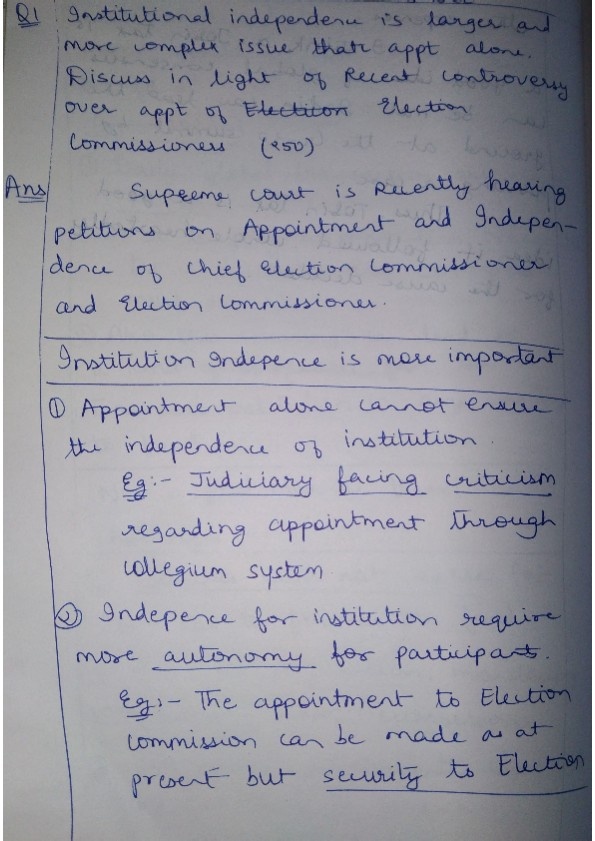 Q1 Institutional independence is larger and
more complex issue than appt alone.
Discuss in light of Recent controversy
over appt of Election Election
Commissioners (250)
Ans Supreme court is Recently hearing
petitions on Appointment and Indepen-
dence of Chief Election Commissioner
and Election Commissioner.
Institution Indepence is more important
① Appointment alone cannot ensure
the independence of institution.
Eg:- Judiciary facing criticism
regarding appointment through
collegium system
② Indepence for institution require
more autonomy for participants.
Eg:- The appointment to Election
Commission can be made as at
present but security to Election